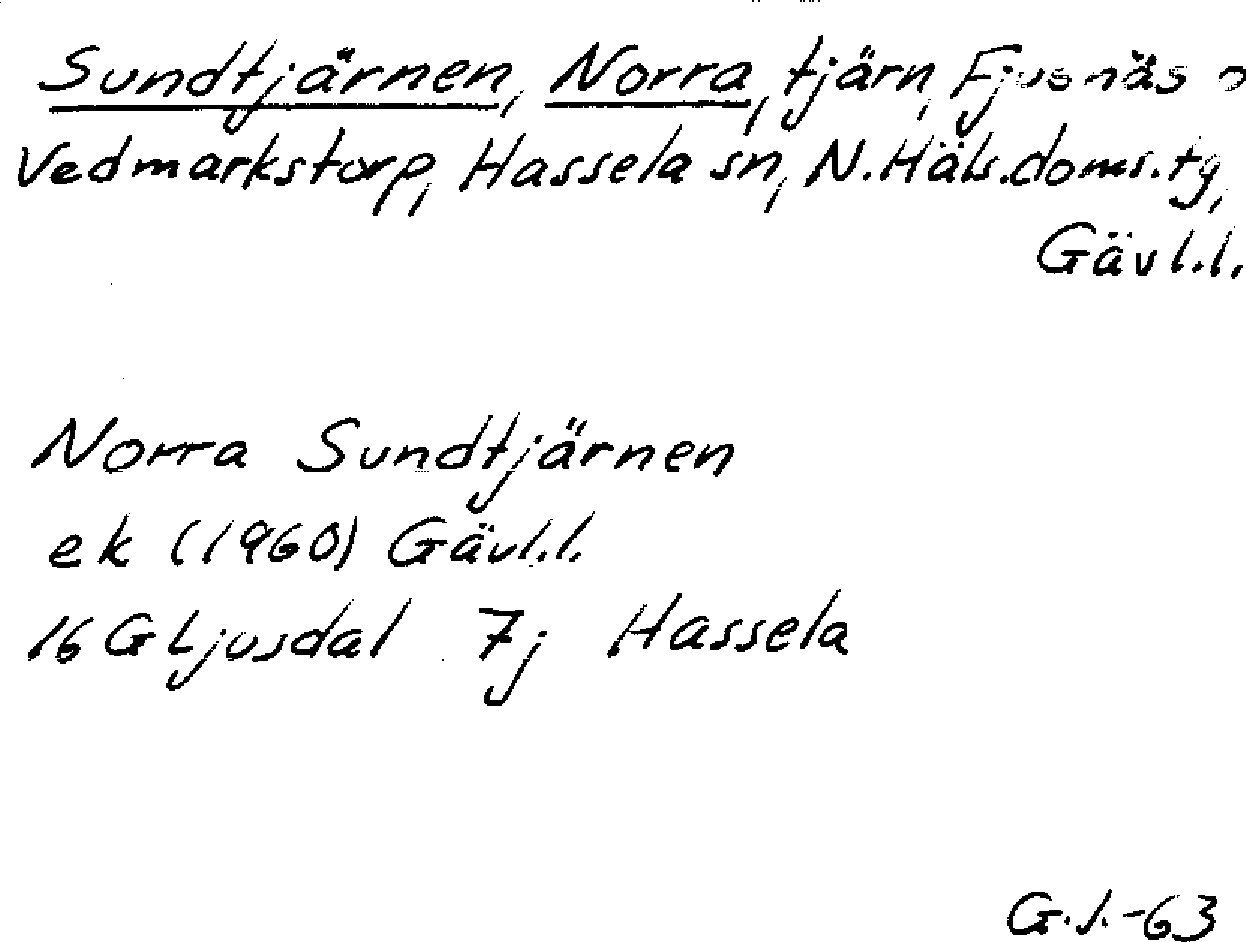 Sundtjärnen, Norra, tjärn, Fjusnäs o
Vedmarkstorp, Hassela sn, N.Häls.doms.tg,
Gävl.l.
Norra Sundtjärnen
ek (1960) Gävl.l.
16 G Ljusdal 7j Hassela
G.I.-63